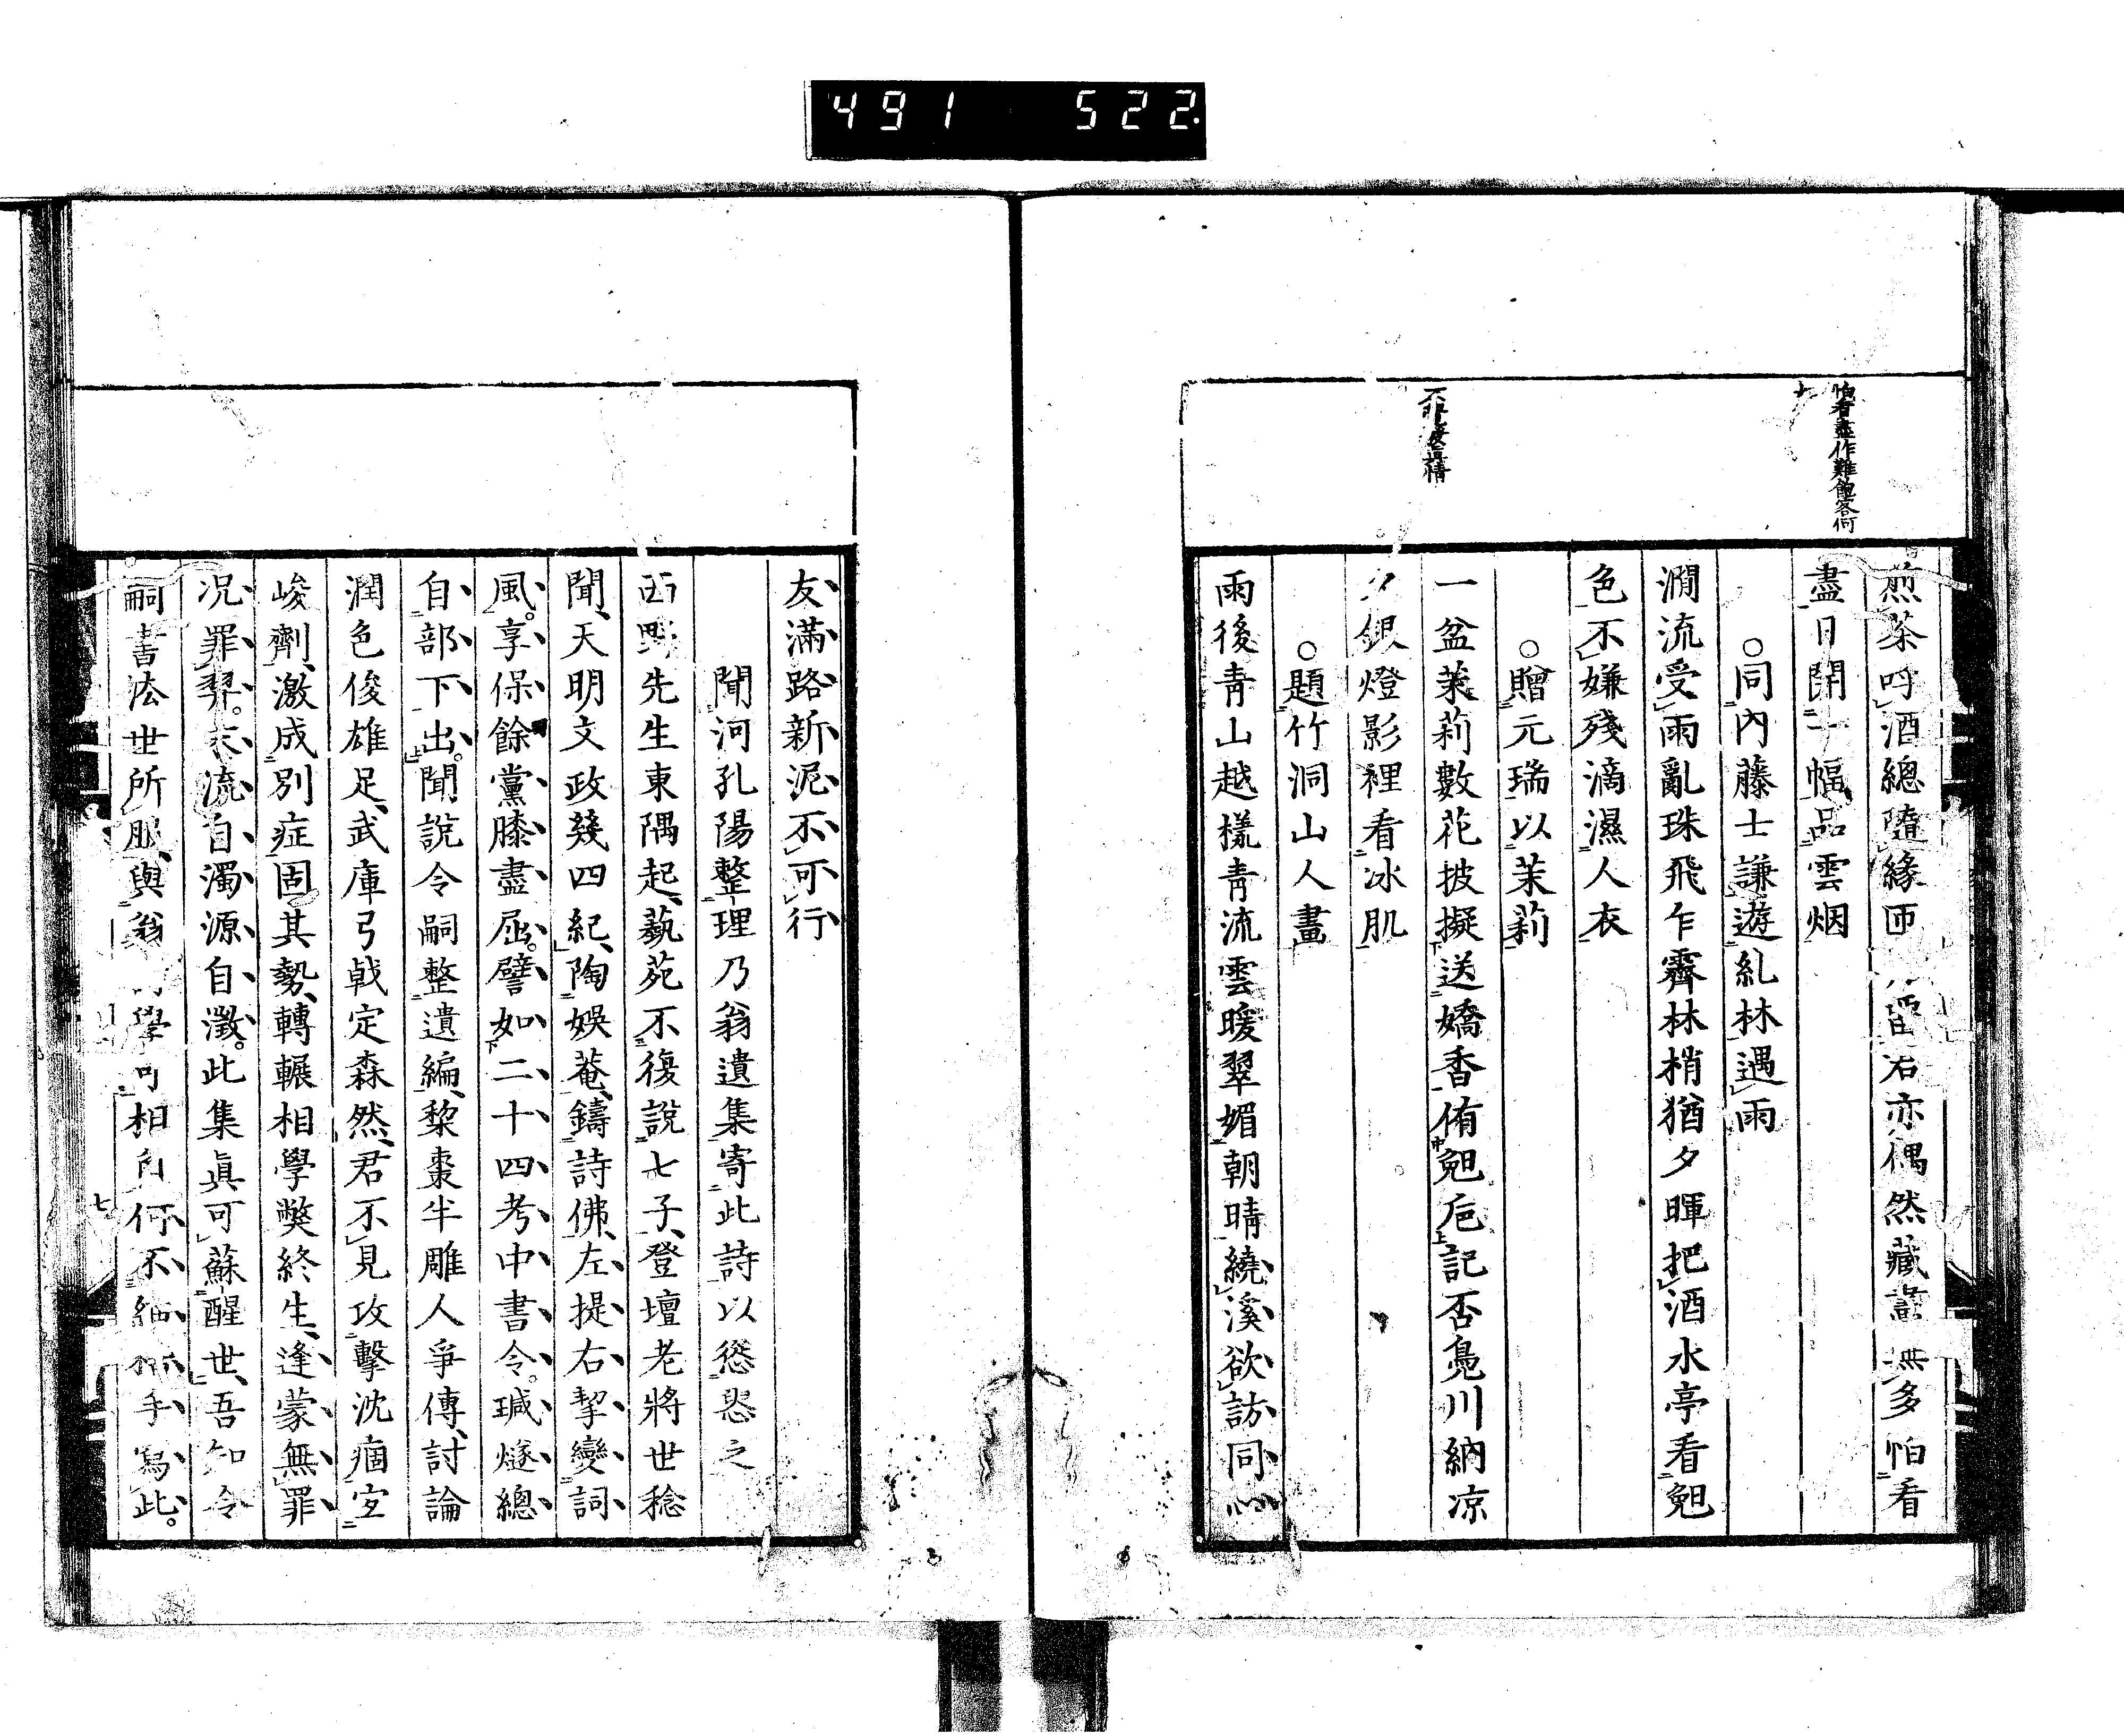 491 522
怕看盡作難飽容何
煎茶呼酒總隨緣匝留君亦偶然藏畫無多怕看
盡日開一幅品雲烟
○同內藤士謙遊糺林遇雨
澗流受雨亂珠飛乍霽林梢猶夕暉把酒水亭看
色不嫌殘滴濕人衣
○贈元瑞以茉莉
一盆茉莉數花披擬送嬌香侑卮記否鳧川納凉
夕銀燈影裡看冰肌
○題竹洞山人畫
雨後青山越樣青流雲暖翠媚朝晴繞溪欲訪同心
友滿路新泥不可行
聞河孔陽整理乃翁遺集寄此詩以慫慂之
西野先生東隅起藝苑不復說七子登壇老將世稔
聞天明文政幾四紀陶娛菴鑄詩佛左提右挈變詞
風享保餘黨膝盡屈譬如二十四考中書令瑊燧總
自部下出聞說令嗣整遺編棃棗半雕人爭傳討論
潤色俊雄足武庫弓戟定森然君不見攻擊沈痼宜
峻劑激成別症固其勢轉輾相學弊終生逢蒙無罪
况罪羿末流自濁源自澂此集眞可蘇醒世吾知令
嗣書法世所服與翁學何相何不細手寫此
七